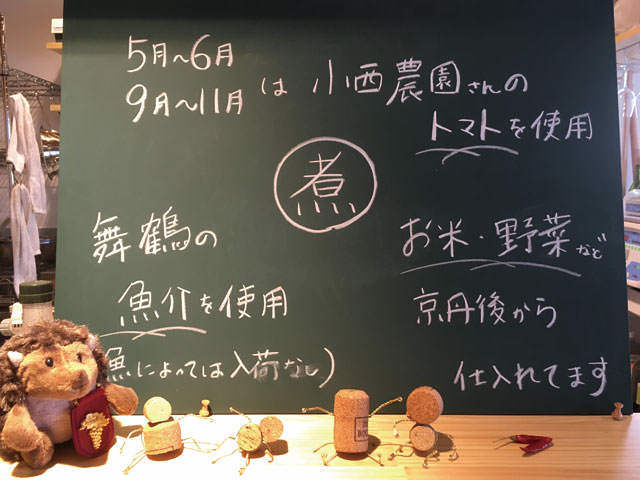 5月〜6月
9月〜11月 は 小西農園さんの
トマトを使用
煮
舞鶴の
魚介を使用
魚によっては入荷なし)
お米・野菜など
京丹後から
仕入れてます